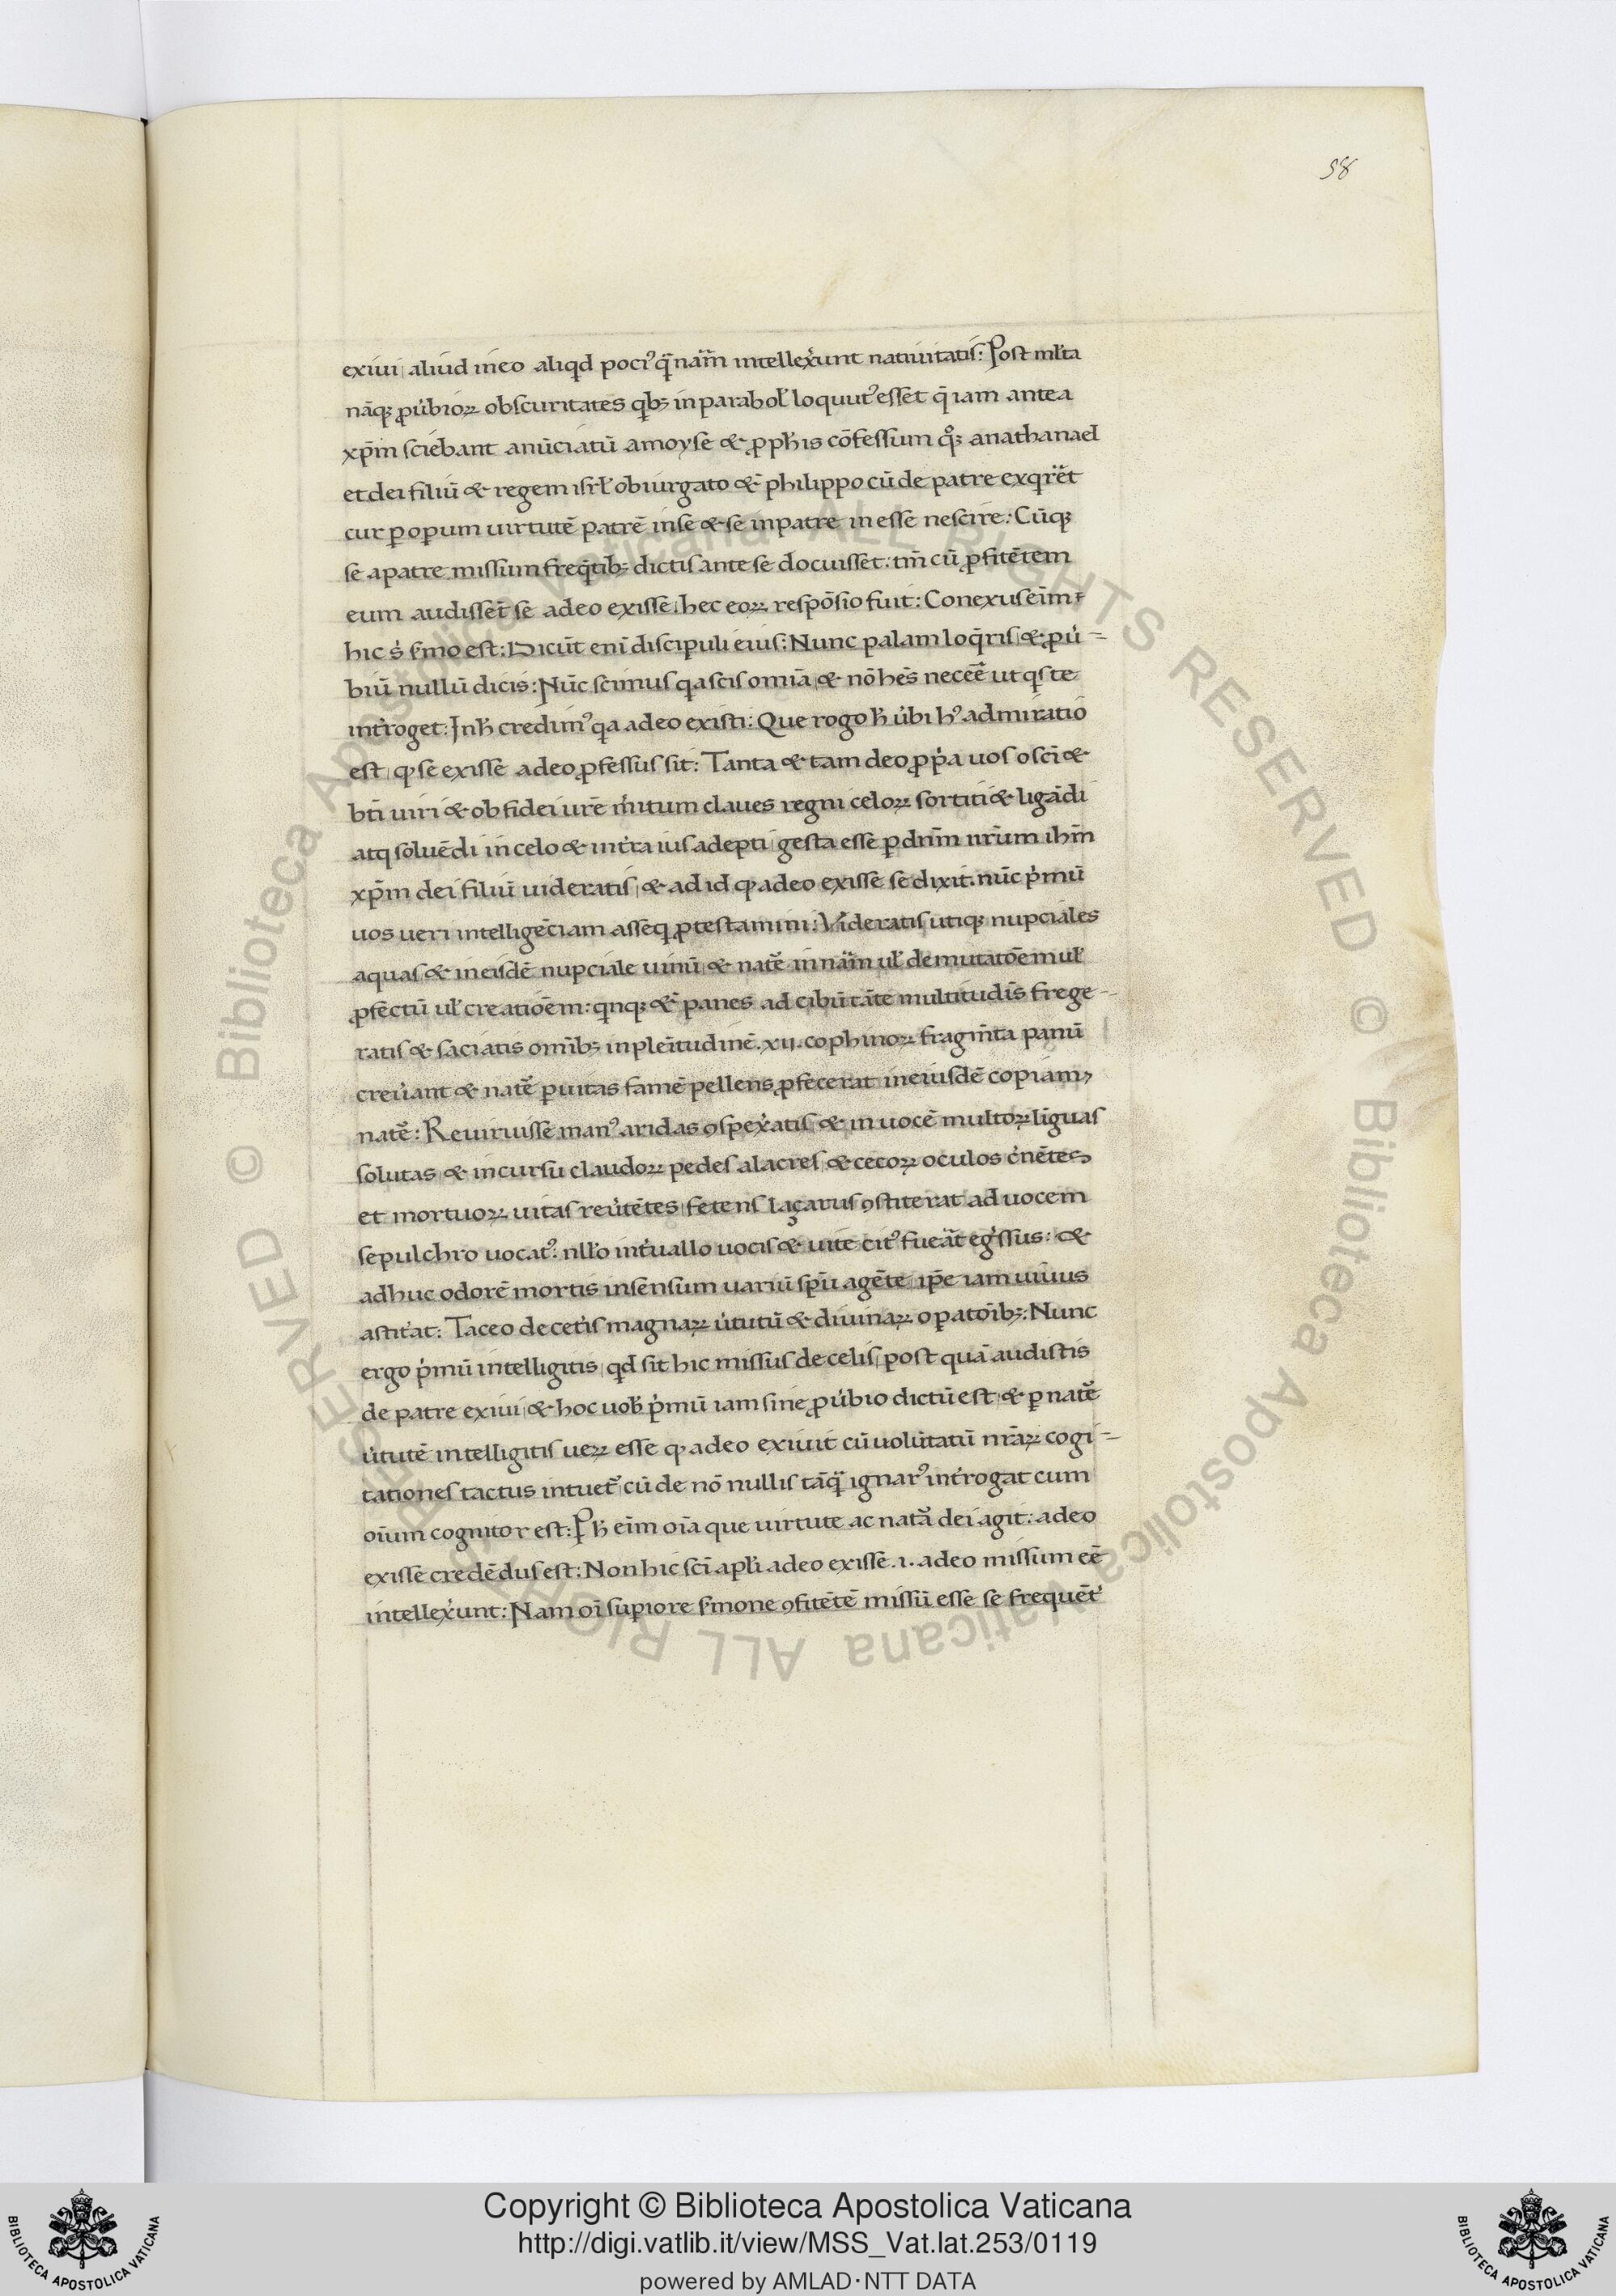 58
exiui aliud in eo aliqd poci᾽ q̄ nãm intellex̓unt natiuitatis: Post ml̓ta
nāq; ꝓu̓bioꝝ obscuritates qb; in parabol̓ loquut᾽ esset q̄ iam antea
xp̄m sciebant anūciatū a moyse & ꝓph̓is cōfessum q̊; a nathanael
et dei filiū & regem isrl̓ obiurgato &̄ philippo cū de patre exqr̓et
cur ꝑ oꝑum uirtutē patrē in se & se in patre in esse nescire: Cūq;
se a patre missum freq̄tib; dictis ante se docuisset: tm̄ cū ꝓfitētem
eum audisset se a deo exisse hec eoꝝ respōsio fuit: Conexus eīm
hic s̓ s̓mo est: Dicūt enī discipuli eius: Nunc palam loq̄ris & ꝓu̓=
biū nullū dicis: Nūc scimus qa scis omīa & nō hēs necēē ut qs te
int̓roget: In h̓ credim᾽ qa a deo existi: Que rogo h̓ u̓bi h᾽ admiratio
est ꝙ se exisse a deo ꝓfessus sit: Tanta & tam deo ꝓp̓a uos o scī &
bt̄i uiri & ob fidei ur̄e m̓itum claues regni celoꝝ sortiti & ligādi
atq soluēdi in celo & in t̓ra ius adepti gesta esse ꝑ dn̄m nr̄um ihm̄
xp̄m dei filiū uideratis & ad id ꝙ a deo exisse se dixit. nūc p̓mū
uos ueri intelligēciam asseq ꝓtestamini: Videratis utiq; nupciales
aquas & in eisdē nupciale uinū & nat̄e in nãm ul̓ demutatōem ul̓
ꝓfectū ul̓ creatiōem: qnq; &̄ panes ad cibū tāte multitudīs frege-
ratis & saciatis omīb; in plēitudinē .xii. cophinoꝝ fragm̄ta panū
creu̓ant & nat̄e ꝑuitas famē pellens ꝓfecerat in eiusdē copiam
nat̄e: Reuiruisse man᾽ aridas ꝯspex̓atis & in uocē multoꝝ liguas
solutas & in cursu claudoꝝ pedes alacres & cecoꝝ oculos c̓nētes
et mortuoꝝ uitas reu̓tētes fetens laçarus ꝯstiterat ad uocem
sepulchro uocat᾽. nll̓o int̓uallo uocis & uite cit᾽ fuea̓t eg̓ssus: &
adhuc odorē mortis in sensum uariū spū agēte ip̄e iam uiuus
astit̓at: Taceo de cet̓is magnaꝝ u̓tutū & diuinaꝝ oꝑatoīb;: Nunc
ergo p̓mū intelligitis qd sit hic missus de celis post quā audistis
de patre exiui & hoc uob̓ p̓mū iam sine ꝓu̓bio dictū est & ꝑ nat̄e
u̓tutē intelligitis ueꝝ esse ꝙ a deo exiuit cū uolūtatū nr̄aꝝ cogi=
tationes tactus intuet᾽ cū de nō nullis tāq̃ ignar᾽ int̓rogat cum
oīum cognitor est: P h̓ eīm oīa que uirtute ac nat̄a dei agit: a deo
exisse credēdus est: Non hic scī apl̓i a deo exisse .i. a deo missum eē
intellex̓unt: Nam oī suꝑiore s̓mone ꝯfitētē missū esse se frequēt̓
Copyright © Biblioteca Apostolica Vaticana
http://digi.vatlib.it/view/MSS_Vat.lat.253/0119
powered by AMLAD·NTT DATA